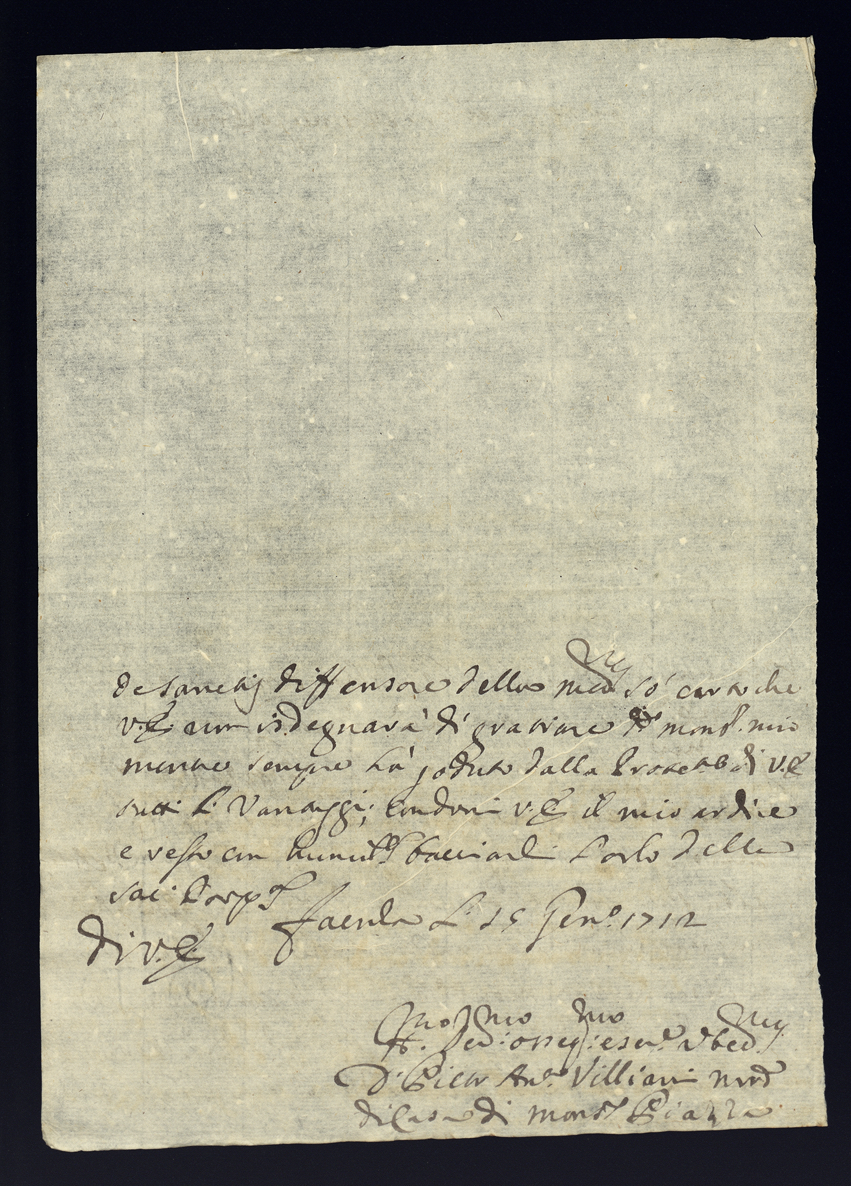 de Sanctis diffensore della med. so' certo che
V. E. non isdegnarà di gratiare d.º Mons.r mio
mentre sempre hà goduto dalla Protet.ne di V. E.
tutti li Vantaggi; Condoni V. E. il mio ardire
e resto con humil.mo bacciarli l'orlo della
Sac. Porp.ra
Faenda Li 15 Gen.º 1712
Di V. E.
H. Dev. osseq. e ser.e obed.
D. Pietr Ant.º Villiani
di Casa di Mons.r Piazza